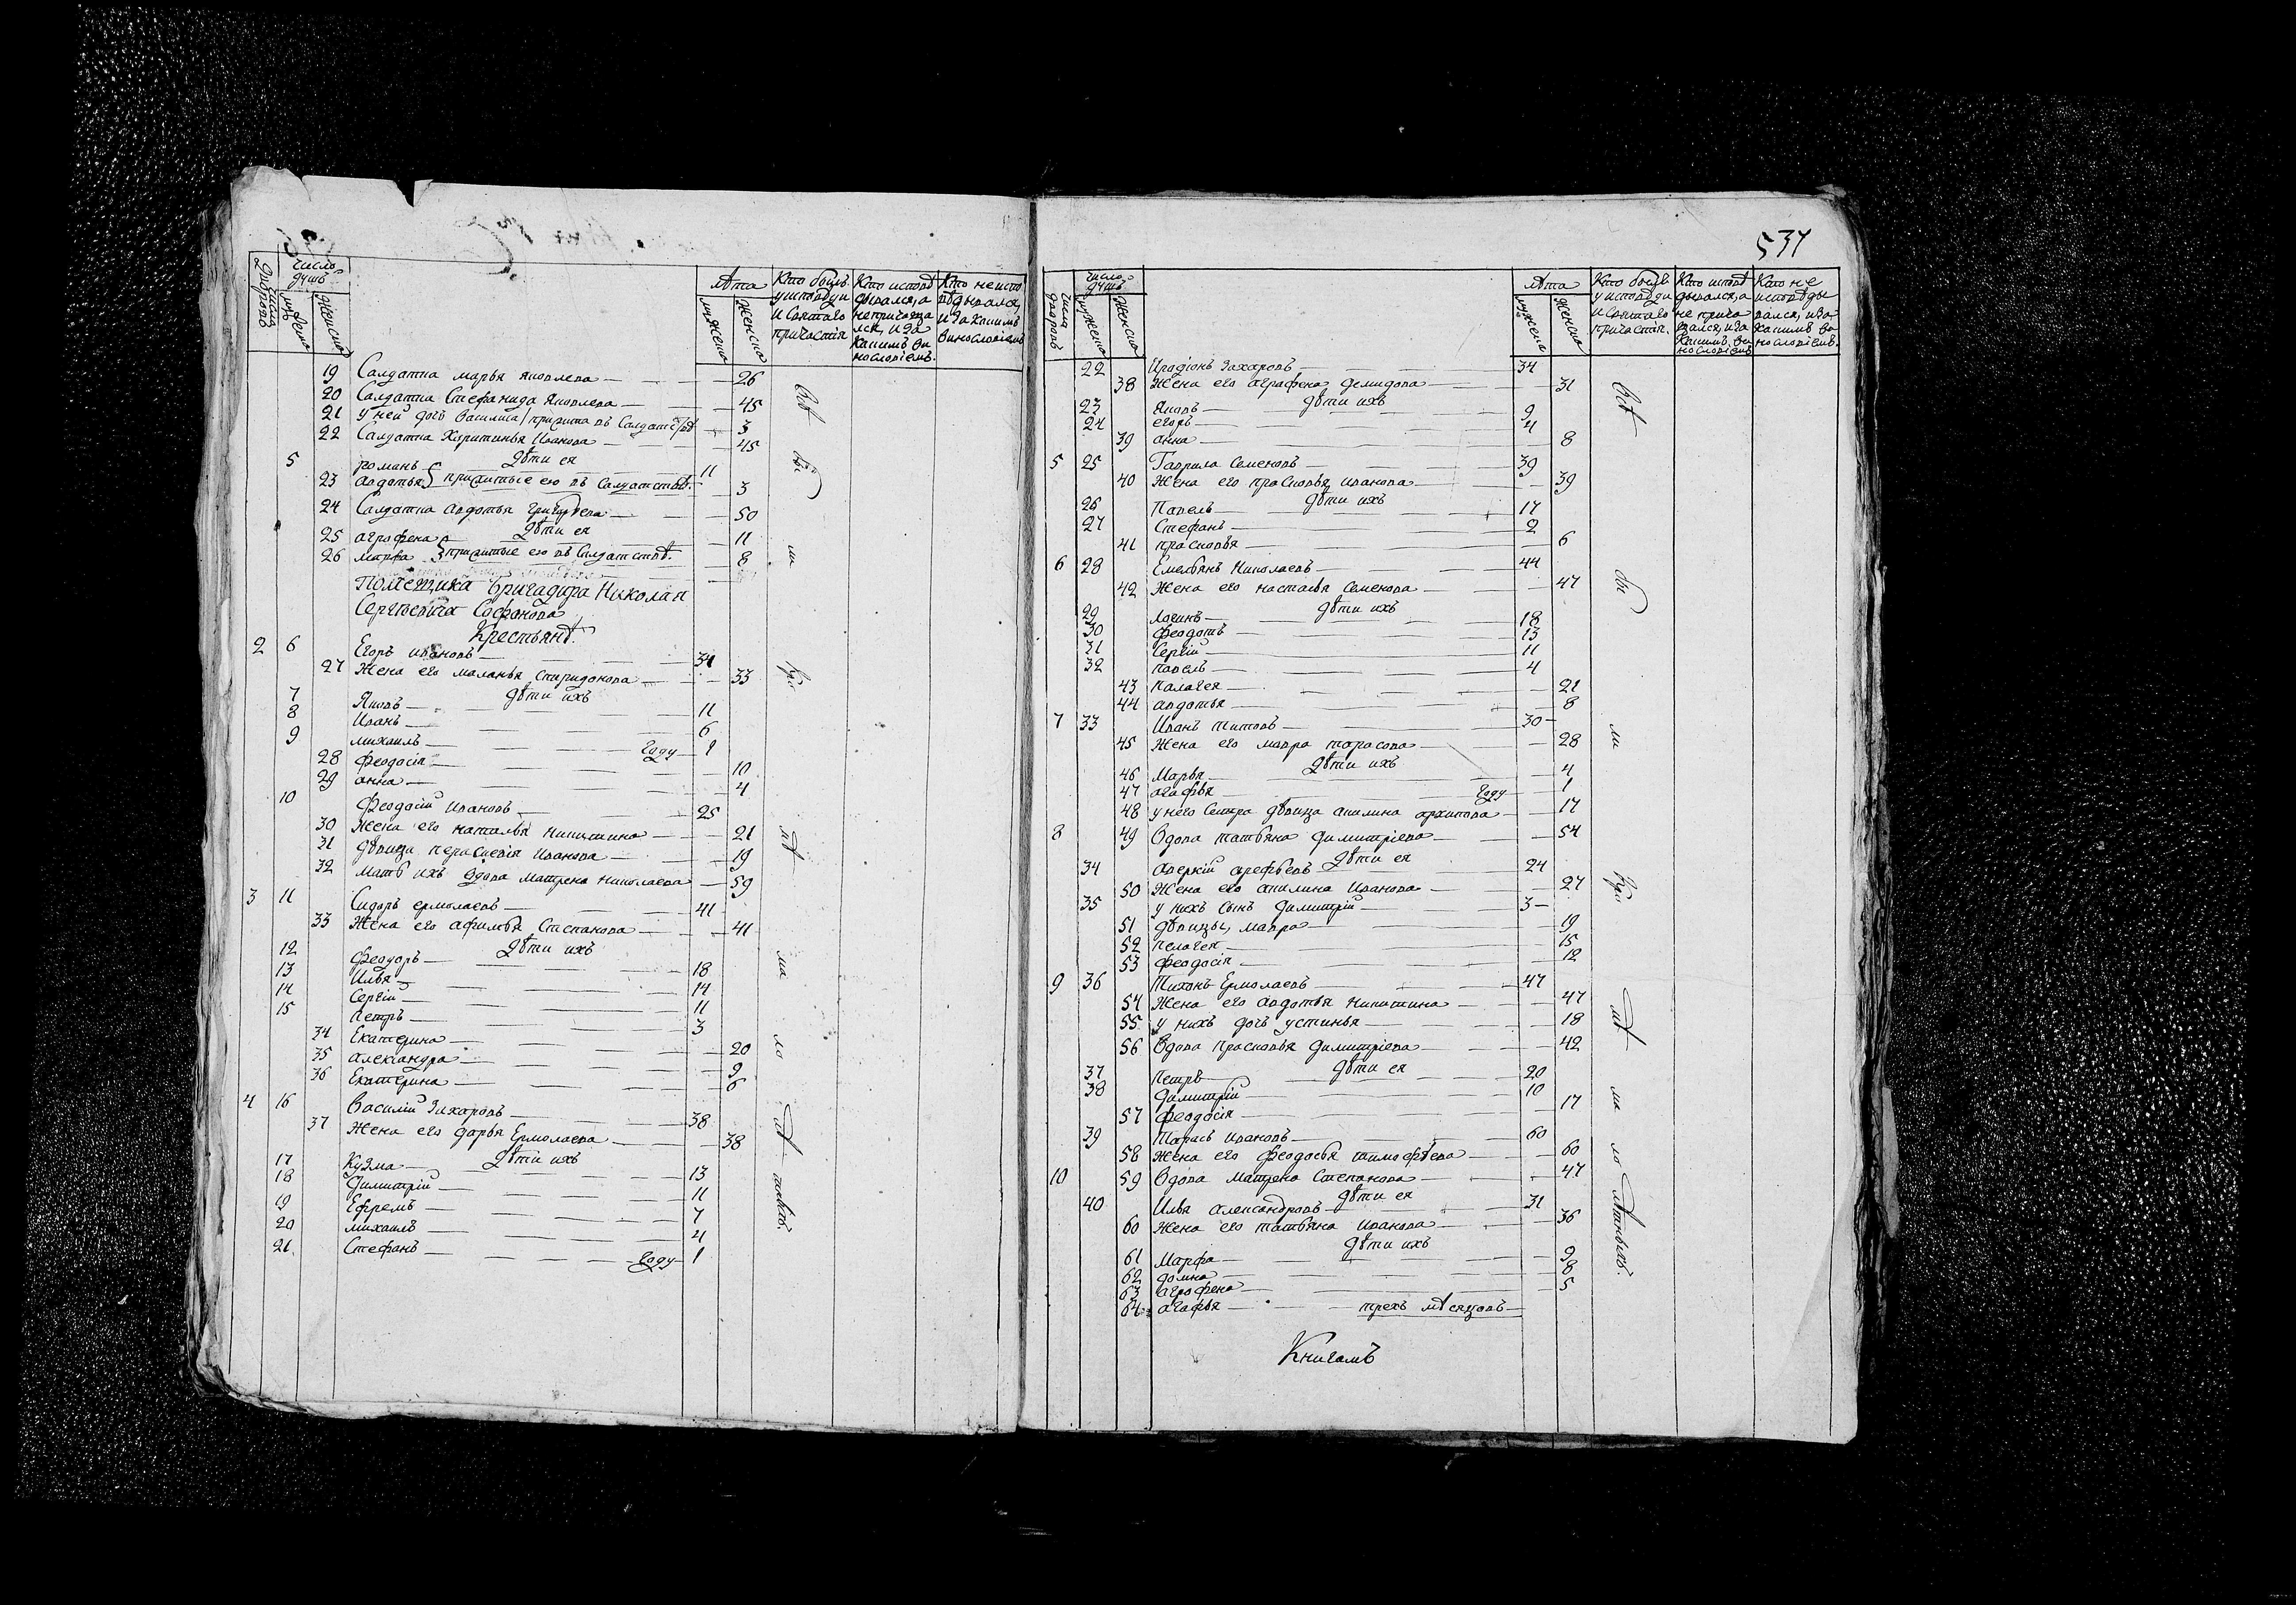 число дворовъ
число душъ
мужеска
женска
лѣта
мужеска
женска
Кто былъ у исповѣди и Святаго причастія
Кто исповѣдывался, а не причащался, и за какимъ винословіемъ.
Кто не исповѣдывался, и за какимъ винословіемъ
19 Салдатка марья яковлева 26
20 Салдатка Стефанида яковлева 45
21 у ней дочь василиса / прижита въ Салдатствѣ 3
22 Салдатка Харитинья иванова 45
дѣти ея
5 романъ 11
23 авдотья } прижитые ею въ Салдатствѣ. 3
24 Салдатка авдотья григорьева 50
дѣти ея
25 аграфена 11
26 марфа } прижитые ею въ Салдатствѣ. 8
Помещика бригадира Николая
Сергѣевича Сафонова
Крестьянѣ.
2 6 Егоръ ивановъ 34
27 Жена его маланья Спиридонова 33
дѣти ихъ
7 Яковъ 11
8 Иванъ 6
9 михаилъ году 1
28 феодосія 10
29 анна 4
10 Феодосій ивановъ 25
30 Жена его наталья никитина 21
31 дѣвица параскевія иванова 19
32 мать ихъ вдова матрена николаева 59
3 11 Сидоръ ермолаевъ 41
33 Жена его афимья Степанова 41
дѣти ихъ
12 феодоръ 18
13 Илья 14
14 Сергій 11
15 петръ 3
34 Екатерина 20
35 александра 9
36 Екатерина 6
4 16 Василій Захаровъ 38
37 Жена его дарья Ермолаева 38
дѣти ихъ
17 Кузма 13
18 димитрій 11
19 Ефремъ 7
20 михаилъ 4
21 Стефанъ году 1
537
число дворовъ
число душъ
мужеска
женска
лѣта
мужеска
женска
Кто былъ у исповѣди и Святаго причастія.
Кто исповѣдывался, а не причащался, и за какимъ винословіемъ
Кто не исповѣдывался, и за какимъ винословіемъ.
22 Ирадіонъ Захаровъ 34
38 Жена его аграфена демидова 31
дѣти ихъ
23 яковъ 9
24 егоръ 4
39 анна 8
5 25 Гаврила Семеновъ 39
40 Жена его прасковья иванова 39
дѣти ихъ
26 Павелъ 17
27 Стефанъ 2
41 прасковья 6
6 28 Емельянъ Николаевъ 44
42 Жена его настасья Семенова 47
дѣти ихъ
29 логинъ 18
30 феодотъ 13
31 Сергій 11
32 павелъ 4
43 палагея 21
44 авдотья 8
7 33 Иванъ титовъ 30
45 Жена его мавра тарасова 28
дѣти ихъ
46 Марья 4
47 агафья году 1
48 у него Сестра дѣвица акилина архипова 17
8 49 Вдова татьяна димитріева 54
дѣти ея
34 аверкій арефьевъ 24
50 Жена его акилина иванова 27
35 у нихъ сынъ димитрій 3
51 дѣвицы, мавра 19
52 пелагея 15
53 феодосія 12
9 36 Тихонъ Ермолаевъ 47
54 Жена его авдотья никитина 47
55 у нихъ дочь устинья 18
56 Вдова прасковья димитріева 42
дѣти ея
37 петръ 20
38 димитрій 10
57 феодосія 17
39 Тарасъ ивановъ 60
58 Жена его феодосья тимофѣева 60
10 59 Вдова матрена Степанова 47
дѣти ея
40 Илья александровъ 31
60 Жена его татьяна иванова 36
дѣти ихъ
61 Марфа 9
62 домна 8
63 аграфена 5
64 агафья трехъ мѣсяцовъ
Книгамъ